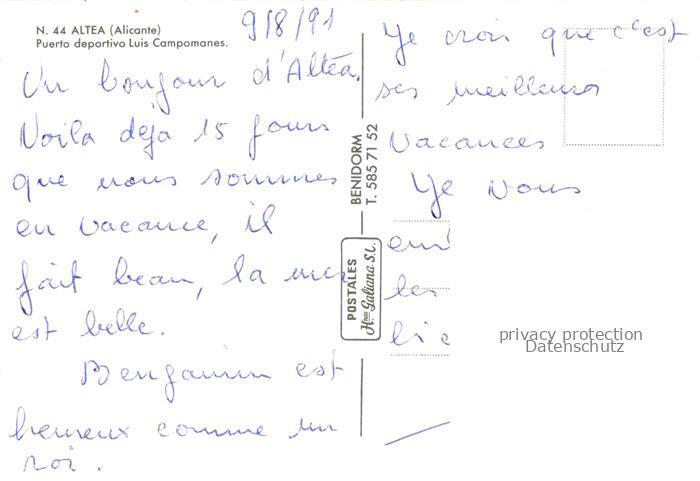 N. 44 ALTEA (Alicante)
Puerto deportivo Luis Campomanes.
9/8/91
Un bonjour d'Altéa.
Voila déja 15 jours
que nous sommes
en vacance, il
fait beau, la mer
est belle.
Benjamin est
heureux comme un
roi.
BENIDORM
T. 585 71 52
POSTALES
Hnos Galiana S.L.
Je crois que c'est
ses meilleures
vacances
Je vous
les
privacy protection
Datenschutz